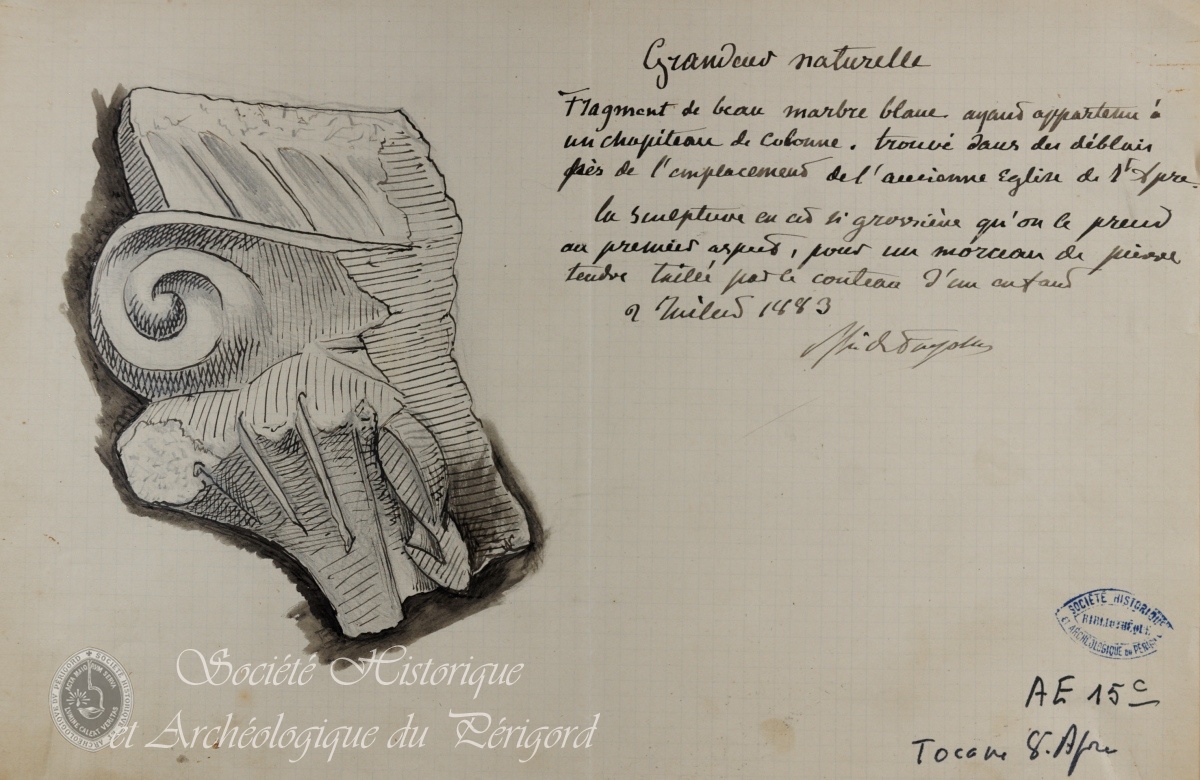 Grandeur naturelle
Fragment de beau marbre blanc ayant appartenu à
un chapiteau de Colonne. trouvé dans des déblais
près de l'emplacement de l'ancienne Eglise de St Apre.
la sculpture en est si grossière qu'on le prend
au premier aspect, pour un morceau de pierre
tendre taillé par le couteau d'un enfant
2 Juillet 1883
SOCIÉTÉ HISTORIQUE
BIBLIOTHÈQUE
ET ARCHÉOLOGIQUE DU PÉRIGORD
AE 15 c
Tocane S. Apre
Société Historique
et Archéologique du Périgord